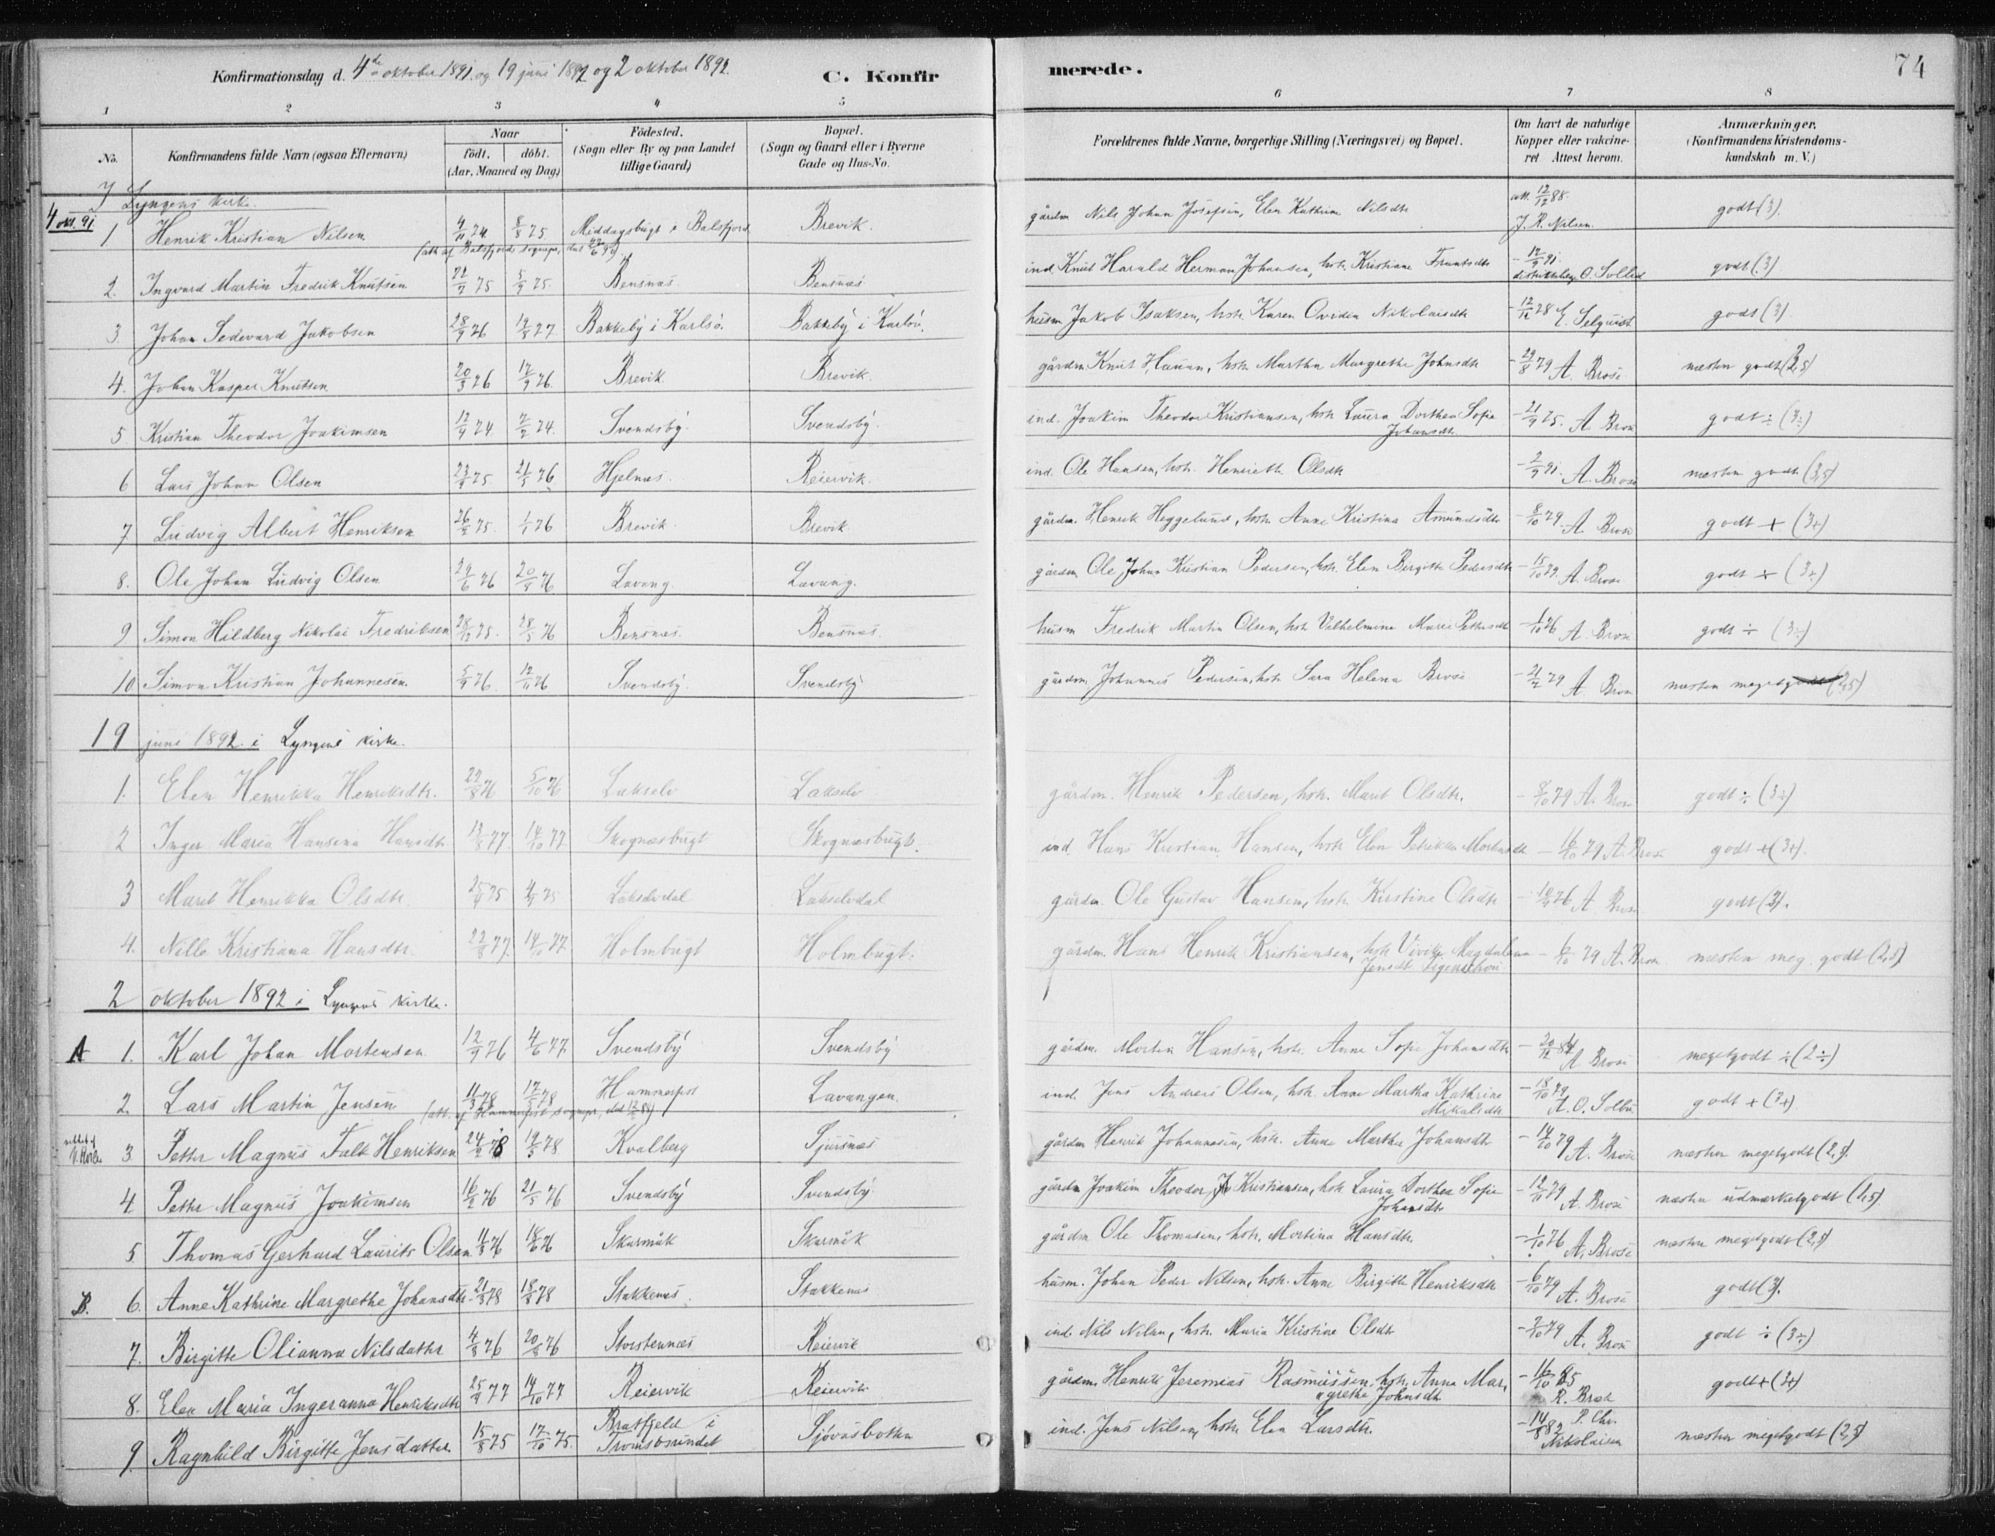 Konfirmationsdag d. 4de oktober 1891 og 19 juni 1892 og 2 oktober 1892. C. Konfirmerede. 74
1 2 3 4 5 6 7 8
No. Konfirmandens fulde Navn (ogsaa Efternavn) Naar født, døbt. (Aar, Maaned og Dag) Fødested. (Sogn eller By og paa Landet tillige Gaard) Bopæl. (Sogn og Gaard eller i Byerne Gade og Hus-No. Forældrenes fulde Navne, borgerlige Stilling (Næringsvei) og Bopæl. Om havt de naturlige Kopper eller vakcineret Attest herom. Anmærkninger. (Konfirmandens Kristendomskundskab m. V.)
I Lyngens kirke.
4 okt. 91
1 Henrik Kristian Nilsen 74 75 Middagsbugt i Balsfjord Brevik. gårdm Nils Johan Josefsen, Elen Kathrine Nilsdtr att. 12/12 88. J. R. Nilsen godt (3).
2. Ingvard Martin Fredrik Knutsen 75 75. Bensnæs. Bensnæs ind. Knut Harald Herman Johansen, hstr. Kristiane 91. O. Solbu godt (3)
3 Johan Sedevard Jakobsen 28/9 76 77 Bakkeby i Karlsø. Bakkeby i Karlsø. husm Jakob Isaksen, hstr. Karen Ovidia Nikolaisdtr E. Selquist godt (3)
4. Johan Kasper Knutsen 76 76. Brevik Brevik. gårdm. Knut Hanan, hstr Martha Margrethe Johnsdtr 29/8 79 A. Brose næsten godt (2,5)
5 Kristian Theodor Joakimsen 74 74. Svendsby. Svendsby. ind. Joakim Theodor Kristiansen, hstr Laura Dorthea Sofie Johansdtr. 21/9 75. A Brose godt ÷ (3÷)
6 Lars Johan Olsen 75. 76 Hjelnæs. Reiervik. ind. Ole Hansen, hstr. Henriette Olsdtr 91. A. Brose næsten godt (3,5)
7 Ludvig Albert Henriksen 75. 76 Brevik Brevik gårdm. Henrik Heggelund, hstr. Anne Kristina Amundsdtr 8/10 79. A. Brose godt + (3+)
8. Ole Johan Ludvig Olsen 76 76 Lavang. Lavang. gårdm. Ole Johan Kristian Pedersen, hstr. Elen Birgitte Pedersdtr 15/10 79. A. Brose godt + (3+)
9 Simon Hildberg Nikolai Fredriksen 28/12 75. 28/5 76 Bensnæs. Bensnæs. husm Fredrik Martin Olsen, hstr Vilhelmine Marie Pettersdtr 76 A. Brose godt ÷ (3÷)
10. Simon Kristian Johannesen 76. 76 Svendsby. Svendsby gårdm. Johannes Pedersen, hstr. Sara Helena Brose 79 A Brose næsten meget godt (2,5)
19 juni 1892. i Lyngens kirke.
1. Elen Henrikka Henriksdtr. 22/8 76 5/10 76 Lakselv Lakselv gårdm. Henrik Pedersen, hstr. Marit Olsdtr. 8/10 79 A. Brose godt ÷ (3÷)
2 Inger Maria Hansina Hansdtr 77. 14/10 77 Skognæsbugt Skognæsbugt. ind. Hans Kristian Hansen, hstr Elen Petrikka Mortensdtr 16/10 79 A. Brose godt + (3+).
3 Marit Henrikka Olsdtr. 75 75 Lakselvdal Lakselvdal gårdm. Ole Gustav Hansen, hstr. Kirstine Olsdtr 76 A. Brose godt (3).
4. Nille Kristiana Hansdtr. 22/8 77. 14/10 77. Holmbugt Holmbugt. gårdm. Hans Henrik Kristiansen, hstr Vivike Magdalena Jensdtr 6/10 79 A. Brose næsten meg. godt (2,5)
2 oktober 1892 i Lyngens kirke.
A 1. Karl Johan Mortensen 12/9 76 4/6 77. Svendsby Svendsby gårdm. Morten Hansen, hstr. Anne Sofie Johansdtr 84 A Brose megetgodt ÷ (2÷)
2. Lars Martin Jensen 78 78 Hammerfest Lavangen. ind. Jens Andreas Olsen, hstr. Ane Martha Kathrine Mikalsdtr 18/10 79 A. O. Solbu godt + (3+).
3. Petter Magnus Falk Henriksen 78 78 Kvalberg Sjursnæs gårdm Henrik Johannesen, hstr. Anne Martha Johansdtr 14/10 79 A. Brose næsten megetgodt (2,5).
4. Petter Magnus Joakimsen 76 21/5 76 Svendsby Svendsby gårdm Joakim Theodor Kristiansen, hstr Laura Dorthea Sofie Johansdtr 79 A. Brose næsten udmærketgodt (1,5)
5 Thomas Gerhard Laurits Olsen 76 18/6 76 Skarmåk Skarmåk gårdm. Ole Thomasen, hstr. Martina Hansdtr. 1/10 76 A. Brose næsten megetgodt (2,5)
B. 6. Anne Kathrine Margrethe Johansdtr 78 78 Stakkenæs. Stakkenæs husm. Johan Peder Nilsen, hstr. Anne Birgitte Henriksdtr 6/10 79 A. Brose godt (3).
7. Birgitte Olianna Nilsdatter 76 76 Storstennæs Reiervik ind. Nils Nilsen, hstr. Maria Kristine Olsdtr 79 A. Brose godt ÷ (3÷)
8. Elen Maria Ingeranna Henriksdtr 25/9 77 14/10 77 Reiervik Reiervik gårdm. Henrik Jeremias Rasmussen, hstr. Anna Margrethe Johnsdtr 16/10 85 godt + (3+)
9. Ragnhild Birgitte Jensdatter 15/8 75 17/10 75. Bratfjeld i Tromsøsundet Sjøvasbotten ind. Jens Nilsen, hstr. Elen Larsdtr. 82 P. Chr. Nikolaisen næsten megetgodt (2,5)